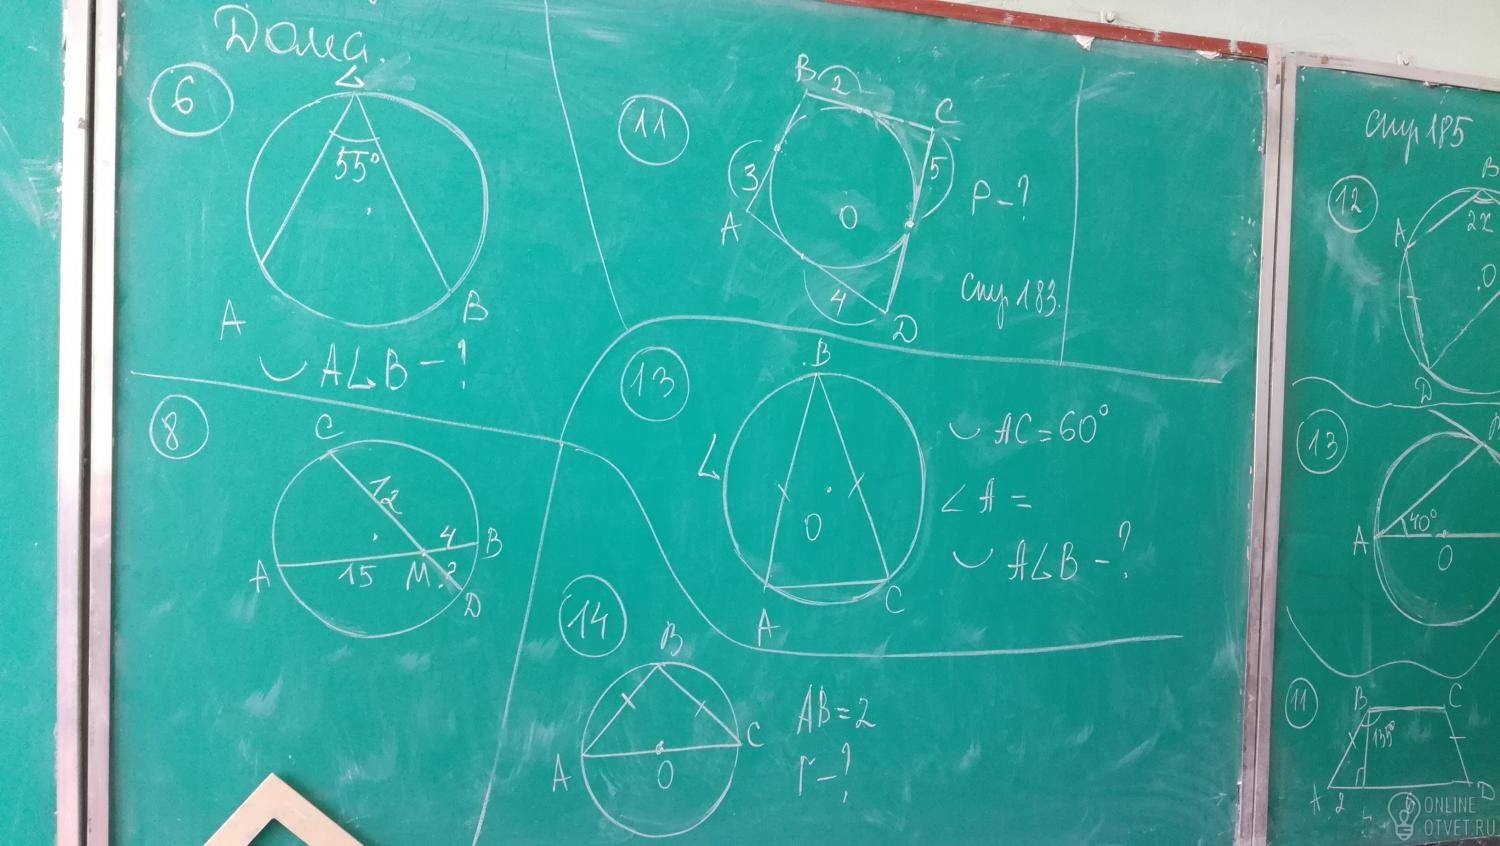 Дома.
6
L
55°
A
B
◡ ALB - ?
11
B
2
C
3
5
A
O
4
D
P - ?
Стр 183.
8
C
12
4
B
A
15
M
?
D
13
B
L
O
A
C
◡ AC = 60°
∠ A =
◡ ALB - ?
14
B
A
O
C
AB = 2
r - ?
Стр 185
12
B
2x
A
O
D
13
A
40°
O
11
B
C
135°
A
2
D
ONLINE
OTVET.RU